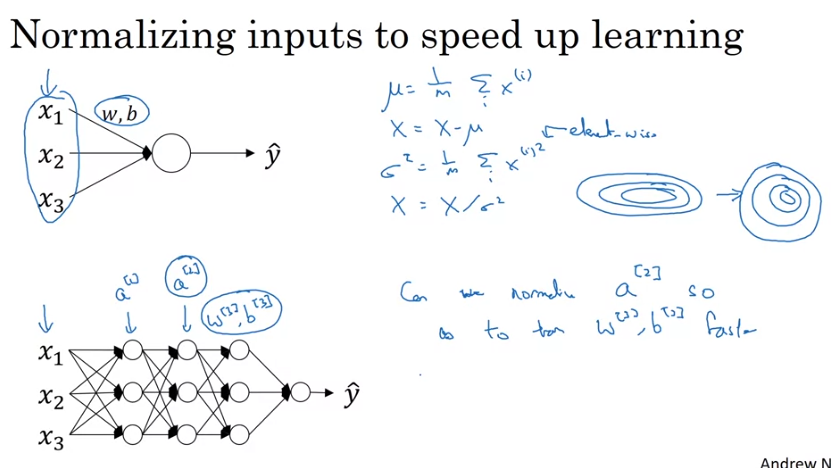 Normalizing inputs to speed up learning
x₁
w, b
x₂
x₃
ŷ
μ = 1/m Σᵢ x⁽ⁱ⁾
X = X - μ
σ² = 1/m Σᵢ x⁽ⁱ⁾² ← element-wise
X = X/σ²
a^[1]
a^[2]
w^[3], b^[3]
x₁
x₂
x₃
ŷ
Can we normalize a^[2] so
as to train w^[3], b^[3] faster
Andrew N